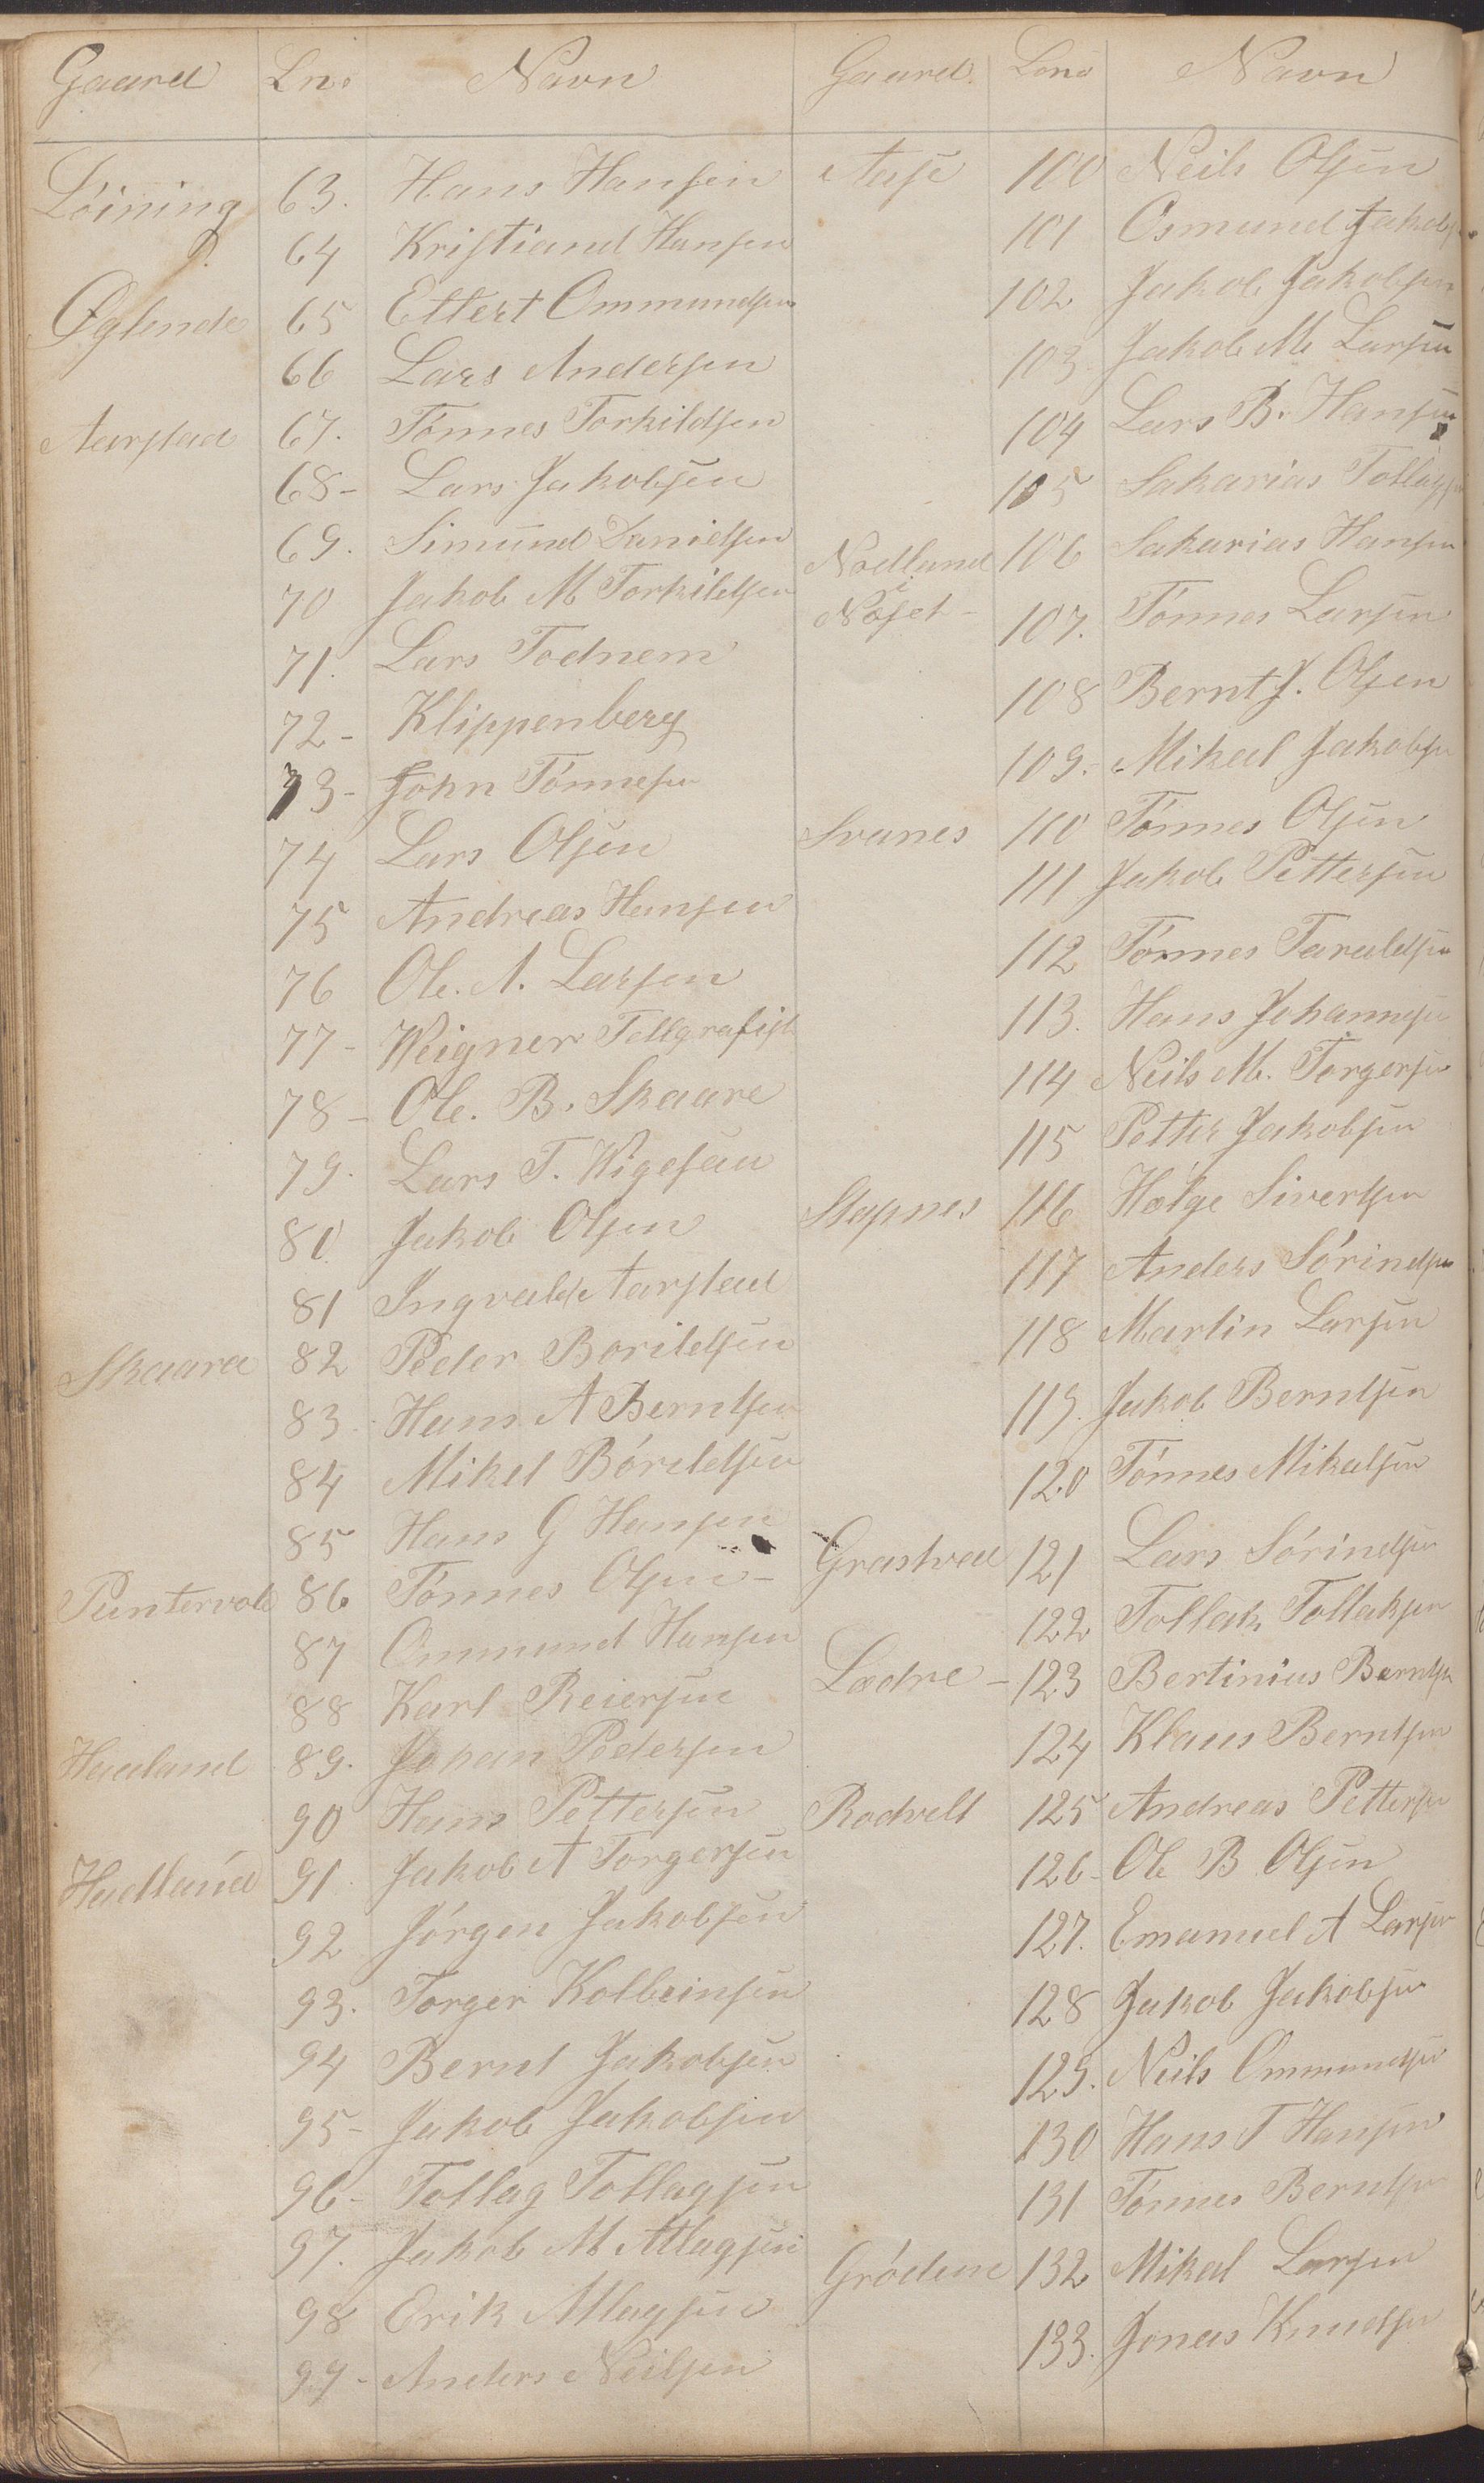 Gaard Lno Navn
Löining 63. Hans Hansen
64 Kristiand Hansen
Øglende 65 Ellert Ommundsen
66 Lars Andersen
Aarstad 67. Tönnes Torkildsen
68- Lars Jakobsen
69. Simund Danielsen
70 Jakob M Torkildsen
71. Lars Todnem
72- Klippenberg
73- John Tönnesen
74 Lars Olsen
75 Andreas Hansen
76 Ole. A. Larsen
77- Weigner Tellgrafist
78- Ole. B. Skaare
79. Lars T. Wigesau
80 Jakob Olsen
81 Ingvald Aarstad
Skaara 82 Peder Borildsen
83. Hans A Berntsen
84 Mikel Börildsen
85 Hans G Hansen
Puntervold 86 Tönnes Olsen-
87 Ommund Hansen
88 Karl Reiersen
Haaland 89. Johan Pedersen
90 Hans Pettersen
Hadland 91. Jakob A Torgersen
92 Jörgen Jakobsen
93. Torger Kolbeinsen
94 Bernt Jakobsen
95- Jakob Jakobsen
96- Tollag Tollagsen
97. Jakob M Atlagsen
98 Erik Atlagsen
99- Anders Neilsen
Gaard. Lono Navn
Aase 100 Neils Olsen
101 Osmund Jakobs
102 Jakob Jakobsen
103 Jakob M. Larsen
104 Lars B. Hansen
105 Sakarias Tollags
Nodland 106 Sakarias Hansen
i
Noset- 107. Tönnes Larsen
108 Bernt J. Olsen
109.- Mikal Jakobsen
Svanes 110 Tönnes Olsen
111 Jakob Pettersen
112 Tönnes Taraldsen
113. Hans Johannesen
114 Neils M. Torgersen
115 Petter Jakobsen
Stapnes 116 Hølge Sivertsen
117 Anders Sörindsen
118 Martin Larsen
119. Jakob Berntsen
120 Tönnes Mikalsen
Grastved 121 Lars Sörindsen
122 Tollak Tollaksen
Lædre - 123 Bertinius Berntsen
124 Klaus Berntsen
Rodvelt 125 Andreas Pettersen
126- Ole B Olsen
127. Emanuel A Larsen
128 Jakob Jakobsen
129. Neils Ommundsen
130 Hans T Hansen
131 Tönnes Berntsen
Grödem 132 Mikal Larsen
133. Jonas Knudsen